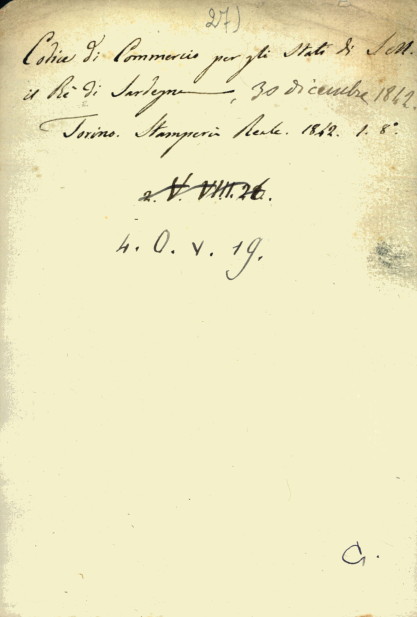 27)
Codice di Commercio per gli Stati di S. M.
il Rè di Sardegna, 30 dicembre 1842.
Torino. Stamperia Reale. 1842. 1. 8.°
2. V. VIII. 26.
4. O. V. 19.
C.